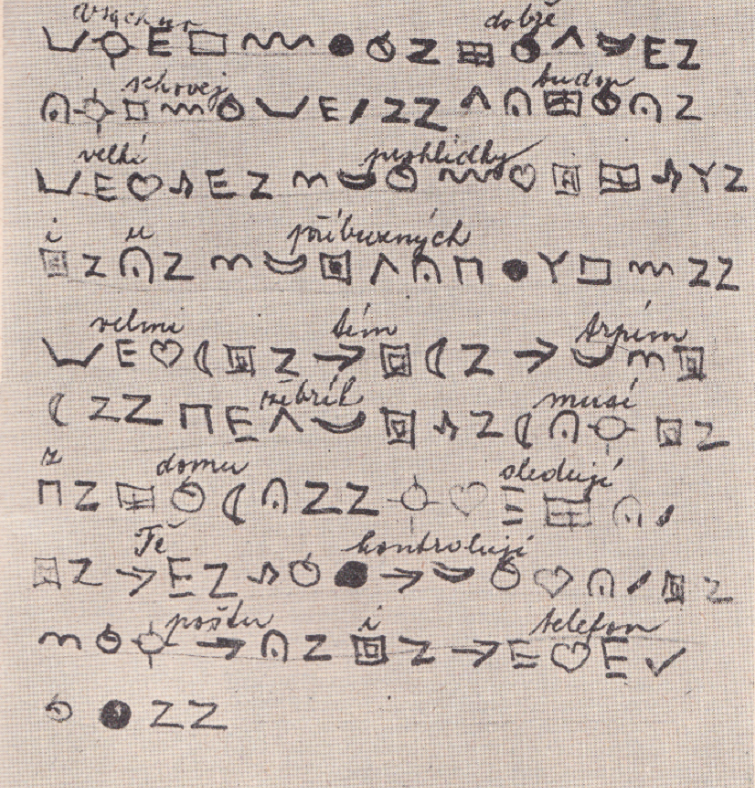 všechno dobře
schovej budou
velké prohlídky
i u příbuzných
velmi tím trpím
žebřík musí
z domu sledují
Tě kontrolují
poštu i telefon